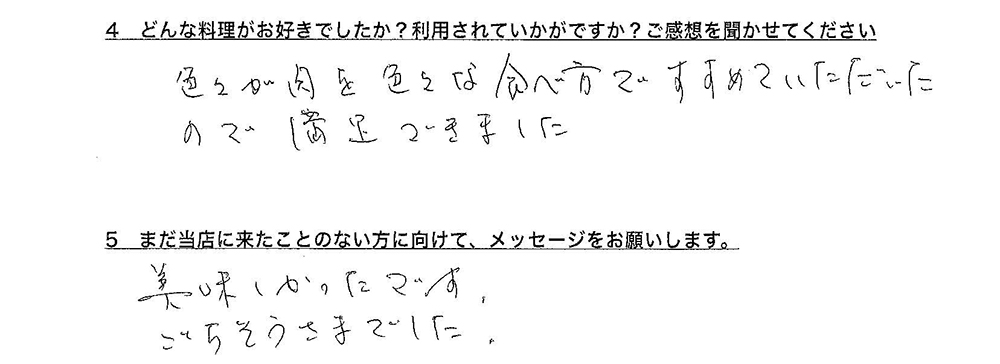 4 どんな料理がお好きでしたか?利用されていかがですか?ご感想を聞かせてください
色々が肉を色々な食べ方ですすめていただいた
ので満足できました
5 まだ当店に来たことのない方に向けて、メッセージをお願いします。
美味しかったです.
ごちそうさまでした.